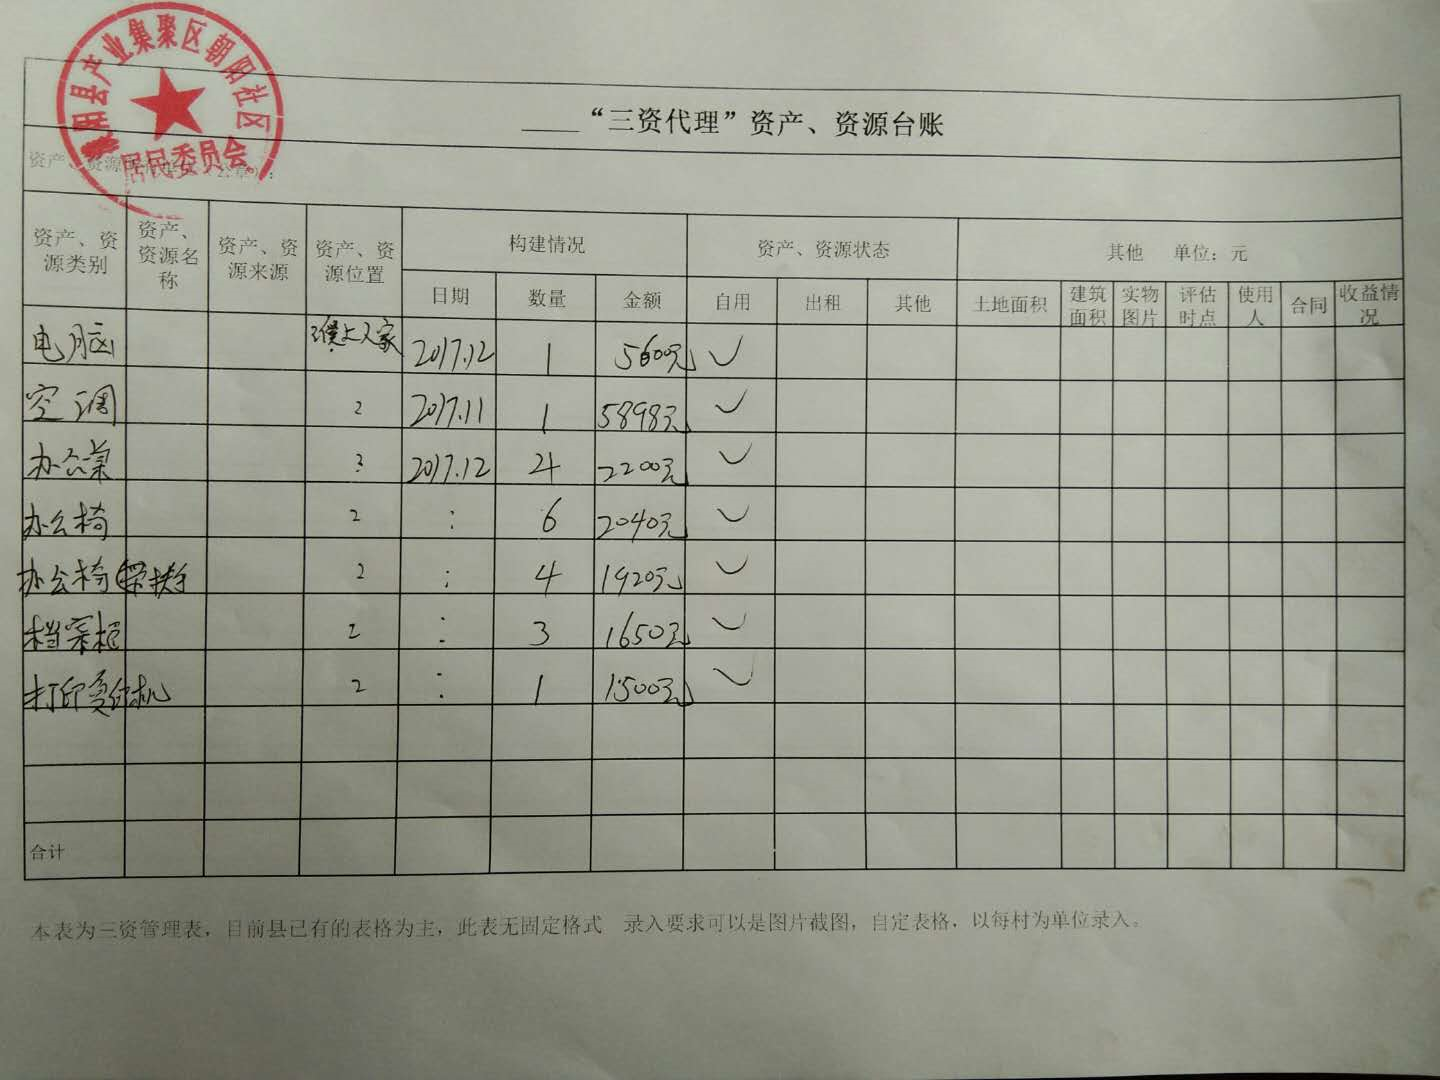 阳县产业集聚区朝阳社区
居民委员会
“三资代理”资产、资源台账
资产、资源
资产、资源类别 资产、资源名称 资产、资源来源 资产、资源位置 构建情况 资产、资源状态 其他 单位：元
日期 数量 金额 自用 出租 其他 土地面积 建筑面积 实物图片 评估时点 使用人 合同 收益情况
电脑 濮上人家 2017.12 1 5600元 ✓
空调 2 2017.11 1 5898元 ✓
办公桌 3 2017.12 4 2200元 ✓
办公椅 2 : 6 2040元 ✓
办公椅(带扶手 2 : 4 1920元 ✓
档案柜 2 : 3 1650元 ✓
打印复印机 2 : 1 1500元 ✓
合计
本表为三资管理表，目前县已有的表格为主，此表无固定格式 录入要求可以是图片截图，自定表格，以每村为单位录入。